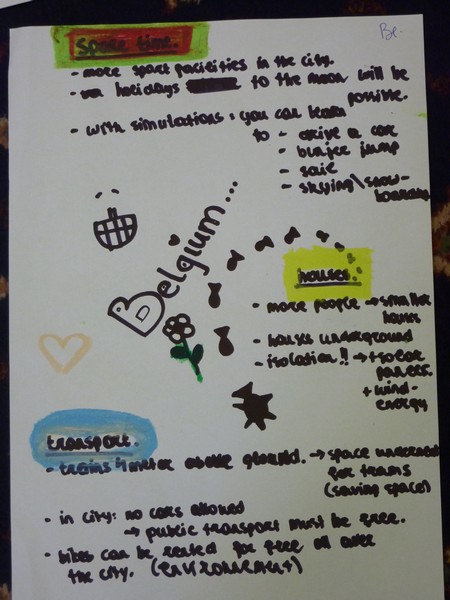 Br.
Spare time.
- more sport facilities in the city.
- on holidays to the moon will be
possible.
- with simulations: you can learn
to - drive a car
- bunjee jump
- sail
- skying\snow-
boarding
Belgium...
houses.
- more people → smaller
houses
- houses underground
- isolation!! → + solar
panels.
+ wind-
energy
transport.
- trains 4 meter above ground. → space underneath
for trams
(saving space)
- in city: no cars allowed
→ public transport must be free.
- bikes can be rented for free all over
the city. (environnement)